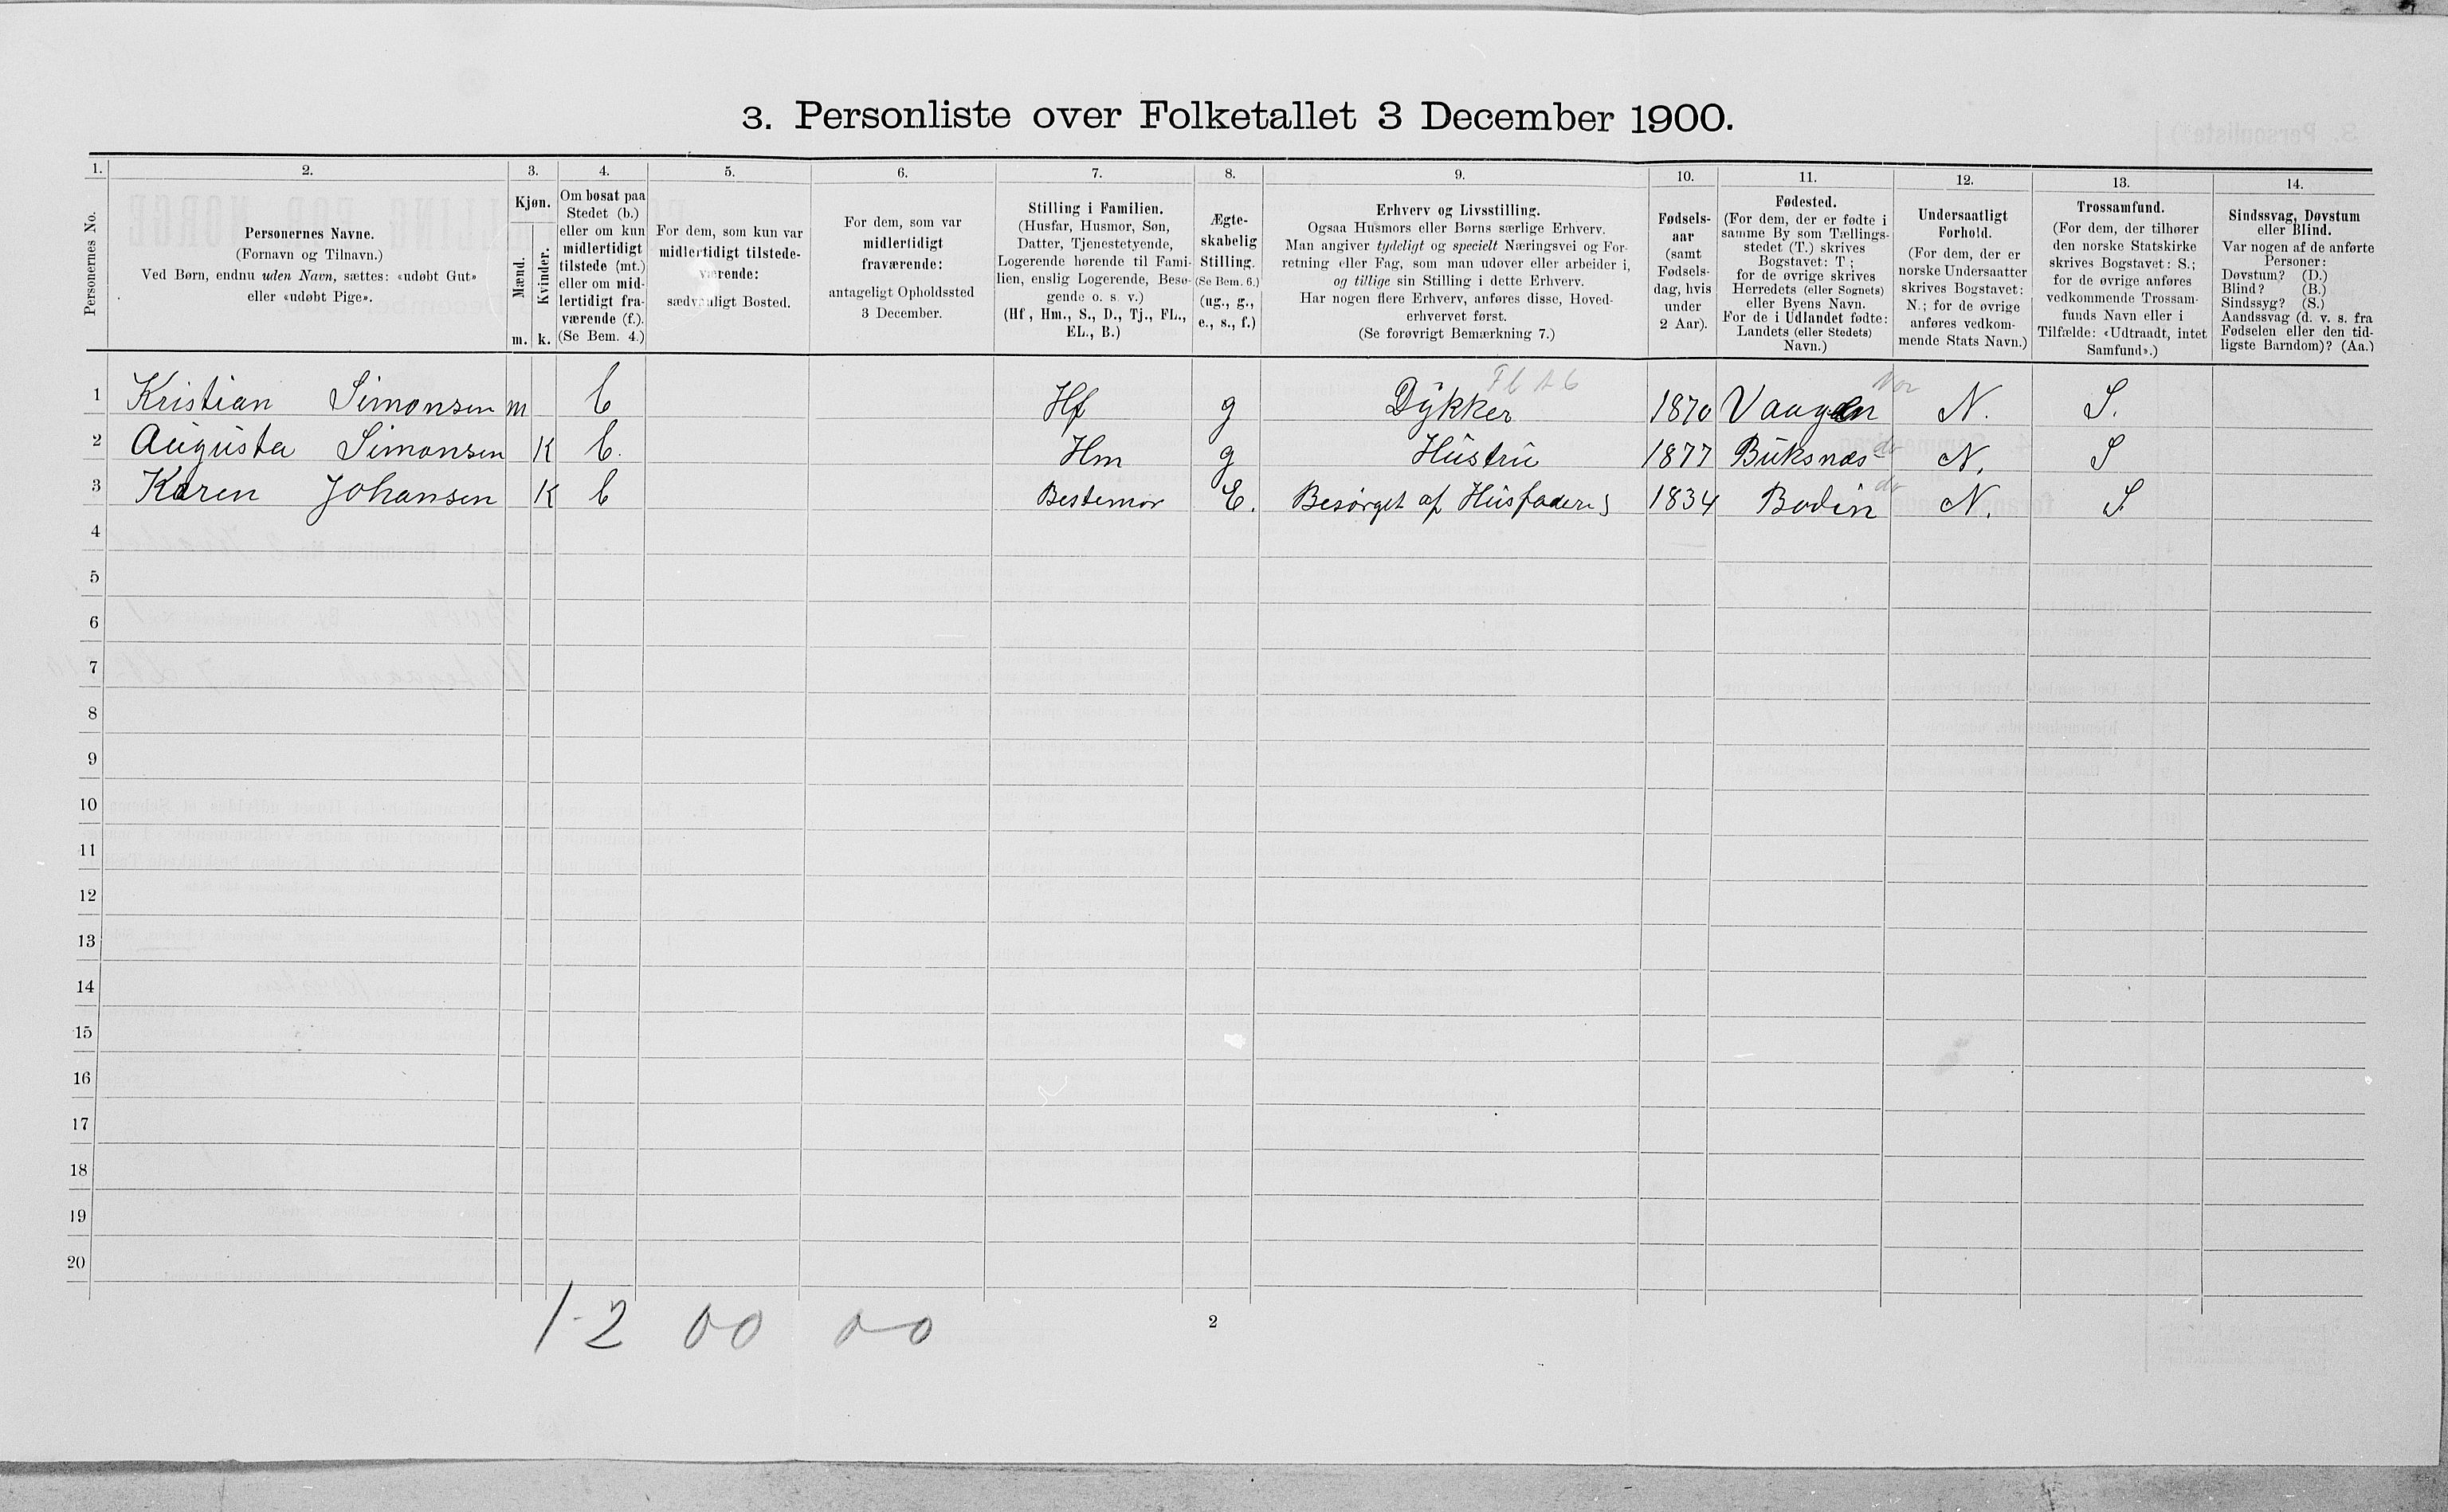 3. Personliste over Folketallet 3 December 1900.
1. 2. 3. 4. 5. 6. 7. 8. 9. 10. 11. 12. 13. 14.
Personernes No.
Personernes Navne.
(Fornavn og Tilnavn.)
Ved Børn, endnu uden Navn, sættes: «udøbt Gut»
eller «udøbt Pige».
Kjøn.
Mænd.
Kvinder.
m. k.
Om bosat paa
Stedet (b.)
eller om kun
midlertidigt
tilstede (mt.)
eller om mid-
lertidigt fra-
værende (f.).
(Se Bem. 4.)
For dem, som kun var
midlertidigt tilstede-
værende:
sædvanligt Bosted.
For dem, som var
midlertidigt
fraværende:
antageligt Opholdssted
3 December.
Stilling i Familien.
(Husfar, Husmor, Søn,
Datter, Tjenestetyende,
Logerende hørende til Fami-
lien, enslig Logerende, Besø-
gende o. s. v.)
(Hf., Hm., S., D., Tj., FL.,
EL., B.)
Ægte-
skabelig
Stilling.
(Se Bem. 6.)
(ug., g.,
e., s., f.)
Erhverv og Livsstilling.
Ogsaa Husmors eller Børns særlige Erhverv.
Man angiver tydeligt og specielt Næringsvei og For-
retning eller Fag, som man udøver eller arbeider i,
og tillige sin Stilling i dette Erhverv.
Har nogen flere Erhverv, anføres disse, Hoved-
erhvervet først.
(Se forøvrigt Bemærkning 7.)
Fødsels-
aar
(samt
Fødsels-
dag, hvis
under
2 Aar).
Fødested.
(For dem, der er fødte i
samme By som Tællings-
stedet (T.) skrives
Bogstavet: T;
for de øvrige skrives
Herredets (eller Sognets)
eller Byens Navn.
For de i Udlandet fødte:
Landets (eller Stedets)
Navn.)
Undersaatligt
Forhold.
(For dem, der er
norske Undersaatter
skrives Bogstavet:
N.; for de øvrige
anføres vedkom-
mende Stats Navn.)
Trossamfund.
(For dem, der tilhører
den norske Statskirke
skrives Bogstavet: S.;
for de øvrige anføres
vedkommende Trossam-
funds Navn eller i
Tilfælde: «Udtraadt, intet
Samfund».)
Sindssvag, Døvstum
eller Blind.
Var nogen af de anførte
Personer:
Døvstum? (D.)
Blind? (B.)
Sindssyg? (S.)
Aandssvag (d. v. s. fra
Fødselen eller den tid-
ligste Barndom)? (Aa.)
1 Kristian Simonsen m b Hf g Dykker 1870 Vaagen N. S.
2 Augusta Simonsen K b. Hm g Hustru 1877 Buksnæs do N. S
3 Karen Johansen K b Bestemor E. Besørget af Husfaderen 1834 Bodin do N. S.
4
5
6
7
8
9
10
11
12
13
14
15
16
17
18
19
20
1-2 00 0-0
2